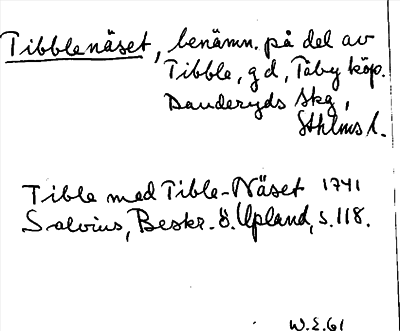 Tibblenäset, benämn. på del av
Tibble, gd, Täby köp.
Danderyds skg,
Sthlms l.
Tible med Tible-Näset 1741
Salvius, Beskr. ö. Upland, s. 118.
W.E. 61